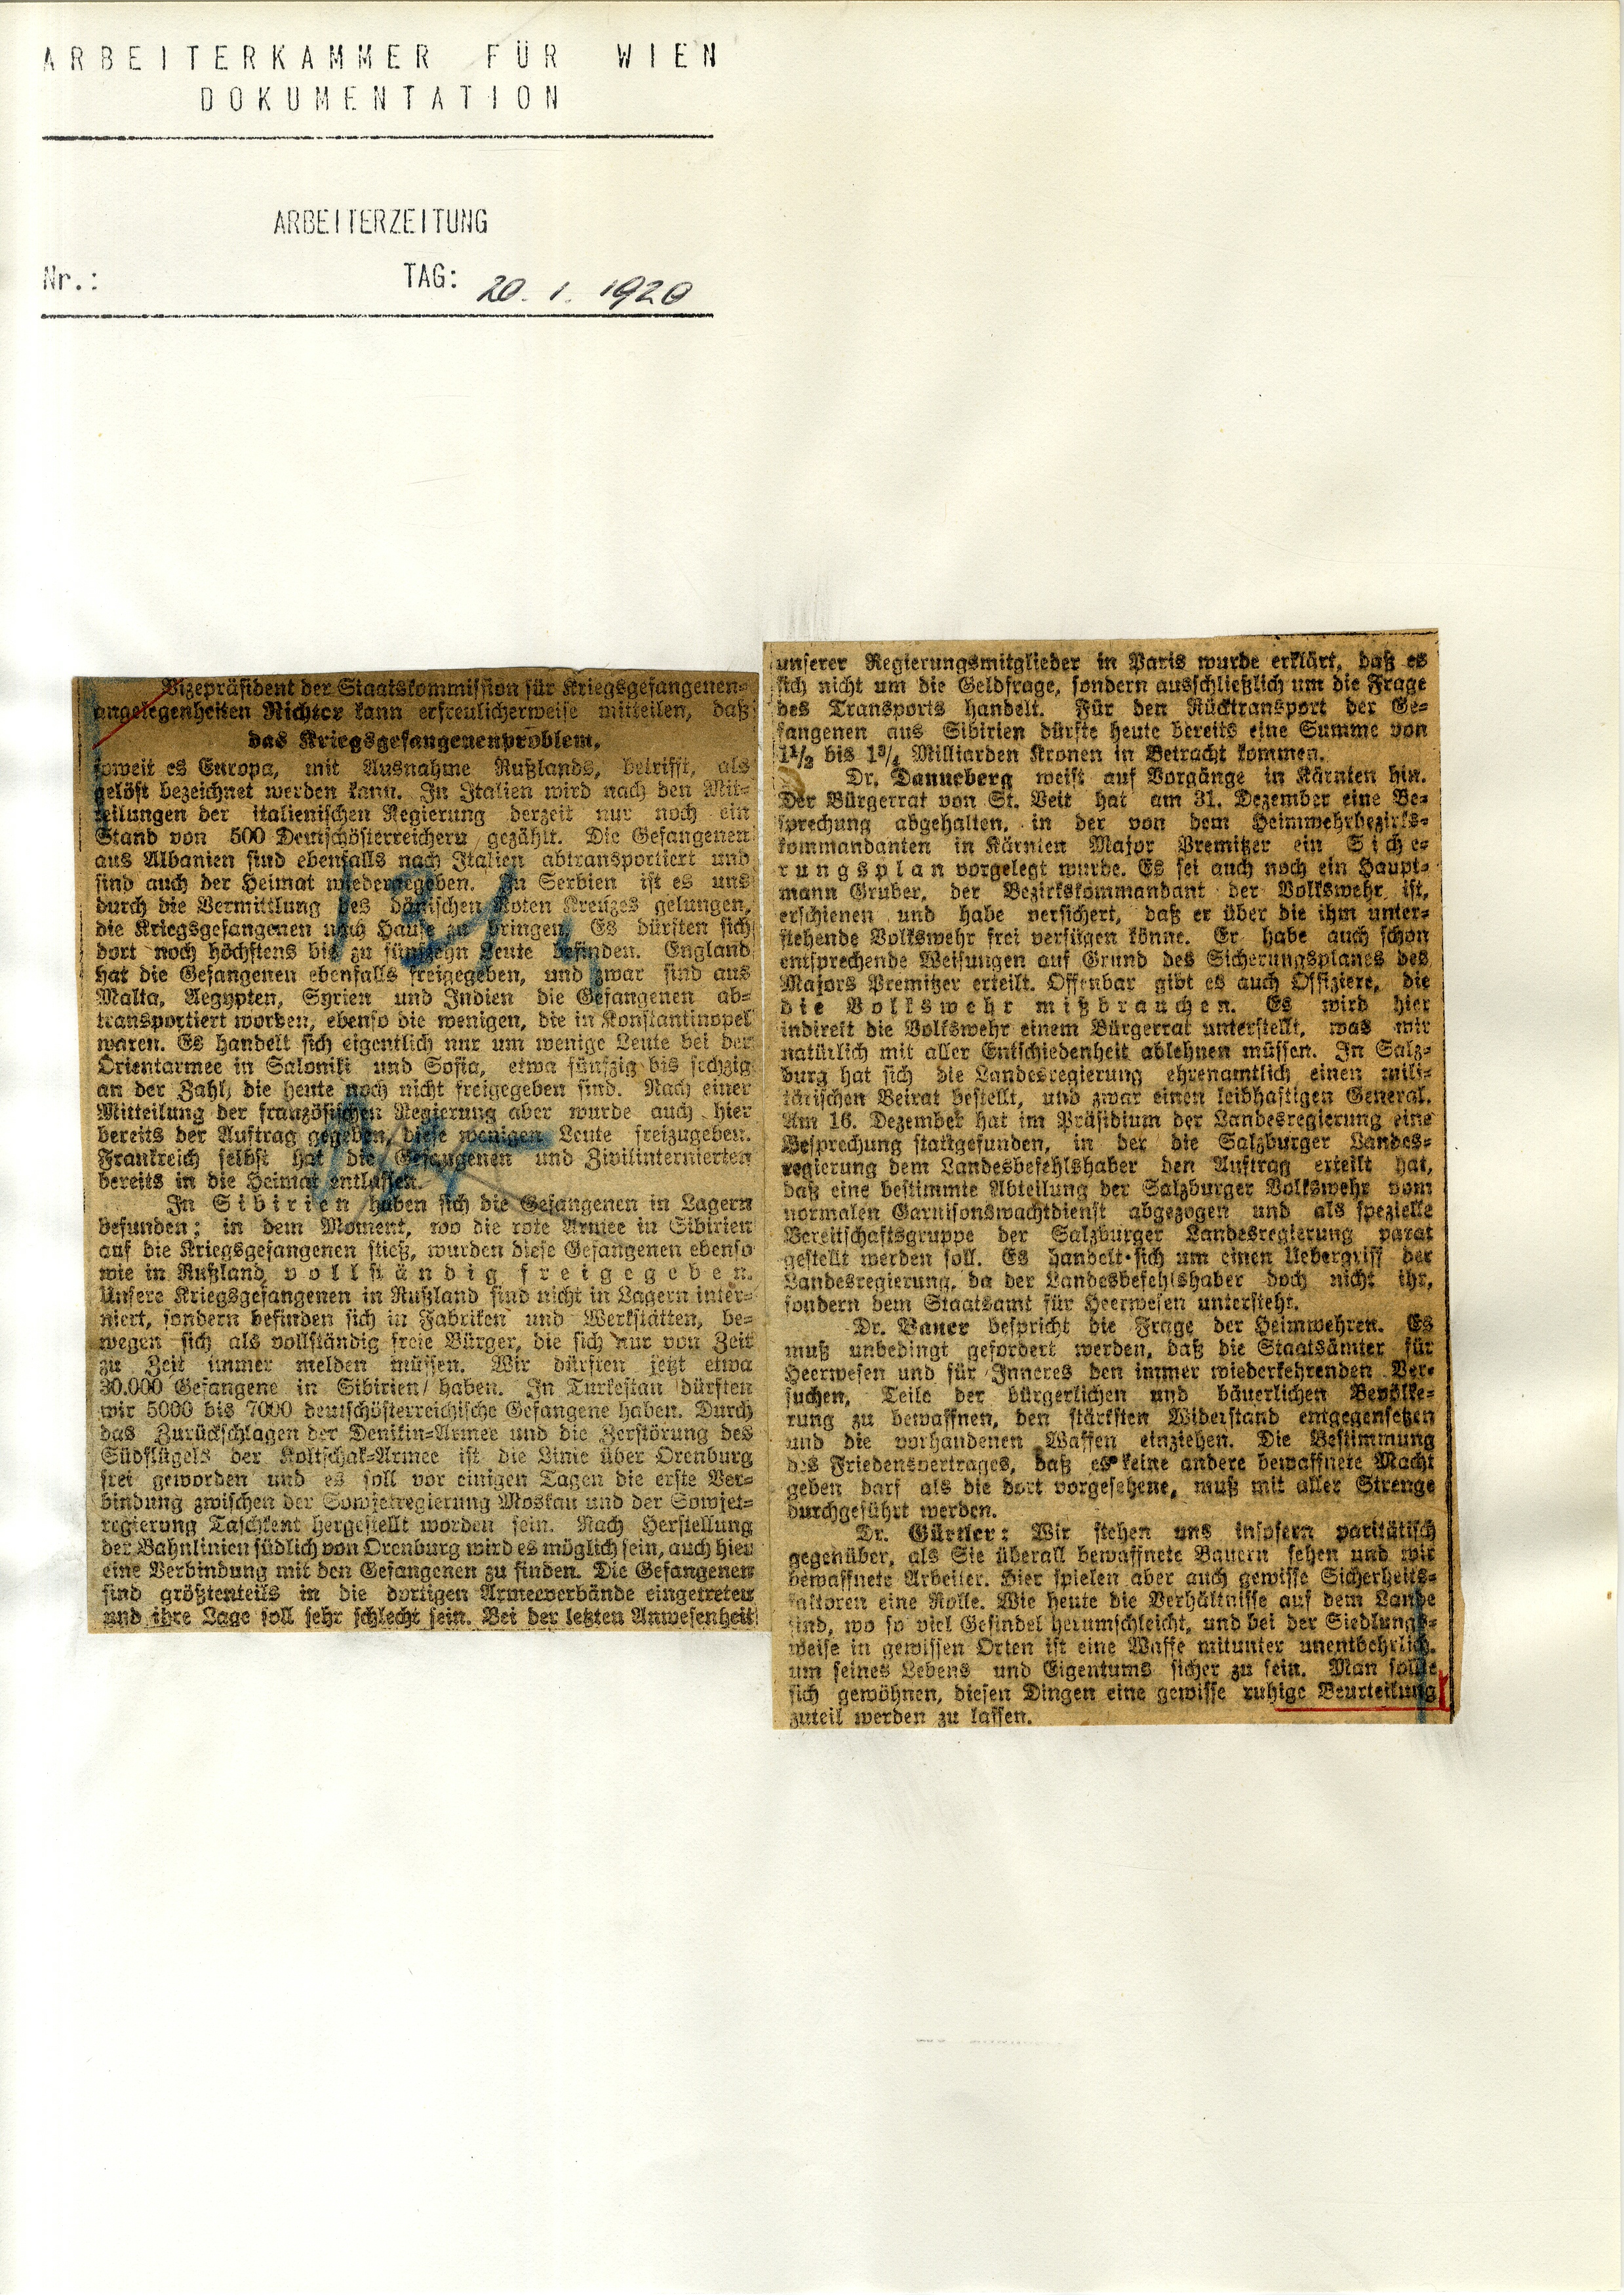 ARBEITERKAMMER FÜR WIEN
DOKUMENTATION
ARBEITERZEITUNG
Nr.: TAG: 20. 1. 1920
Vizepräsident der Staatskommission für Kriegsgefangenen-
angelegenheiten Richter kann erfreulicherweise mitteilen, daß
das Kriegsgefangenenproblem,
soweit es Europa, mit Ausnahme Rußlands, betrifft, als
gelöst bezeichnet werden kann. In Italien wird nach den Mit-
teilungen der italienischen Regierung derzeit nur noch ein
Stand von 500 Deutschösterreichern gezählt. Die Gefangenen
aus Albanien sind ebenfalls nach Italien abtransportiert und
sind auch der Heimat wiedergegeben. In Serbien ist es uns
durch die Vermittlung des dänischen Roten Kreuzes gelungen,
die Kriegsgefangenen nach Hause zu bringen. Es dürften sich
dort noch höchstens bis zu fünfzehn Leute befinden. England
hat die Gefangenen ebenfalls freigegeben, und zwar sind aus
Malta, Aegypten, Syrien und Indien die Gefangenen ab-
transportiert worden, ebenso die wenigen, die in Konstantinopel
waren. Es handelt sich eigentlich nur um wenige Leute bei der
Orientarmee in Saloniki und Sofia, etwa fünfzig bis sechzig
an der Zahl, die heute noch nicht freigegeben sind. Nach einer
Mitteilung der französischen Regierung aber wurde auch hier
bereits der Auftrag gegeben, diese wenigen Leute freizugeben.
Frankreich selbst hat die Gefangenen und Zivilinternierten
bereits in die Heimat entlassen.
In Sibirien haben sich die Gefangenen in Lagern
befunden; in dem Moment, wo die rote Armee in Sibirien
auf die Kriegsgefangenen stieß, wurden diese Gefangenen ebenso
wie in Rußland vollständig freigegeben.
Unsere Kriegsgefangenen in Rußland sind nicht in Lagern inter-
niert, sondern befinden sich in Fabriken und Werkstätten, be-
wegen sich als vollständig freie Bürger, die sich nur von Zeit
zu Zeit immer melden müssen. Wir dürften jetzt etwa
30.000 Gefangene in Sibirien haben. In Turkestan dürften
wir 5000 bis 7000 deutschösterreichische Gefangene haben. Durch
das Zurückschlagen der Denikin-Armee und die Zerstörung des
Südflügels der Koltschak-Armee ist die Linie über Orenburg
frei geworden und es soll vor einigen Tagen die erste Ver-
bindung zwischen der Sowjetregierung Moskau und der Sowjet-
regierung Taschkent hergestellt worden sein. Nach Herstellung
der Bahnlinien südlich von Orenburg wird es möglich sein, auch hier
eine Verbindung mit den Gefangenen zu finden. Die Gefangenen
sind größtenteils in die dortigen Armeeverbände eingetreten
und ihre Lage soll sehr schlecht sein. Bei der letzten Anwesenheit
unserer Regierungsmitglieder in Paris wurde erklärt, daß es
sich nicht um die Geldfrage, sondern ausschließlich um die Frage
des Transports handelt. Für den Rücktransport der Ge-
fangenen aus Sibirien dürfte heute bereits eine Summe von
1½ bis 1¾ Milliarden Kronen in Betracht kommen.
Dr. Danneberg weist auf Vorgänge in Kärnten hin.
Der Bürgerrat von St. Veit hat am 31. Dezember eine Be-
sprechung abgehalten, in der von dem Heimwehrbezirks-
kommandanten in Kärnten Major Premitzer ein Siche-
rungsplan vorgelegt wurde. Es sei auch noch ein Haupt-
mann Gruber, der Bezirkskommandant der Volkswehr ist,
erschienen und habe versichert, daß er über die ihm unter-
stehende Volkswehr frei verfügen könne. Er habe auch schon
entsprechende Weisungen auf Grund des Sicherungsplanes des
Majors Premitzer erteilt. Offenbar gibt es auch Offiziere, die
die Volkswehr mißbrauchen. Es wird hier
indirekt die Volkswehr einem Bürgerrat unterstellt, was wir
natürlich mit aller Entschiedenheit ablehnen müssen. In Salz-
burg hat sich die Landesregierung ehrenamtlich einen mili-
tärischen Beirat bestellt, und zwar einen leibhaftigen General.
Am 16. Dezember hat im Präsidium der Landesregierung eine
Besprechung stattgefunden, in der die Salzburger Landes-
regierung dem Landesbefehlshaber den Auftrag erteilt hat,
daß eine bestimmte Abteilung der Salzburger Volkswehr vom
normalen Garnisonswachtdienst abgezogen und als spezielle
Bereitschaftsgruppe der Salzburger Landesregierung parat
gestellt werden soll. Es handelt sich um einen Uebergriff der
Landesregierung, da der Landesbefehlshaber doch nicht ihr,
sondern dem Staatsamt für Heerwesen untersteht.
Dr. Bauer bespricht die Frage der Heimwehren. Es
muß unbedingt gefordert werden, daß die Staatsämter für
Heerwesen und für Inneres den immer wiederkehrenden Ver-
suchen, Teile der bürgerlichen und bäuerlichen Bevölke-
rung zu bewaffnen, den stärksten Widerstand entgegensetzen
und die vorhandenen Waffen einziehen. Die Bestimmung
des Friedensvertrages, daß es keine andere bewaffnete Macht
geben darf als die dort vorgesehene, muß mit aller Strenge
durchgeführt werden.
Dr. Gürtler: Wir stehen uns insofern paritätisch
gegenüber, als Sie überall bewaffnete Bauern sehen und wir
bewaffnete Arbeiter. Hier spielen aber auch gewisse Sicherheits-
faktoren eine Rolle. Wie heute die Verhältnisse auf dem Lande
sind, wo so viel Gesindel herumschleicht, und bei der Siedlungs-
weise in gewissen Orten ist eine Waffe mitunter unentbehrlich,
um seines Lebens und Eigentums sicher zu sein. Man sollte
sich gewöhnen, diesen Dingen eine gewisse ruhige Beurteilung
zuteil werden zu lassen.